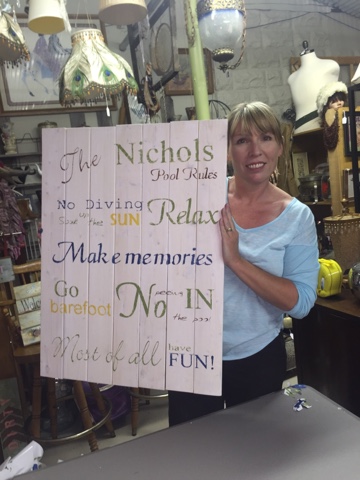 The Nichols
Pool Rules
No Diving
Soak up the SUN Relax
Make memories
Go barefoot
No peeing IN the pool
Most of all have FUN!